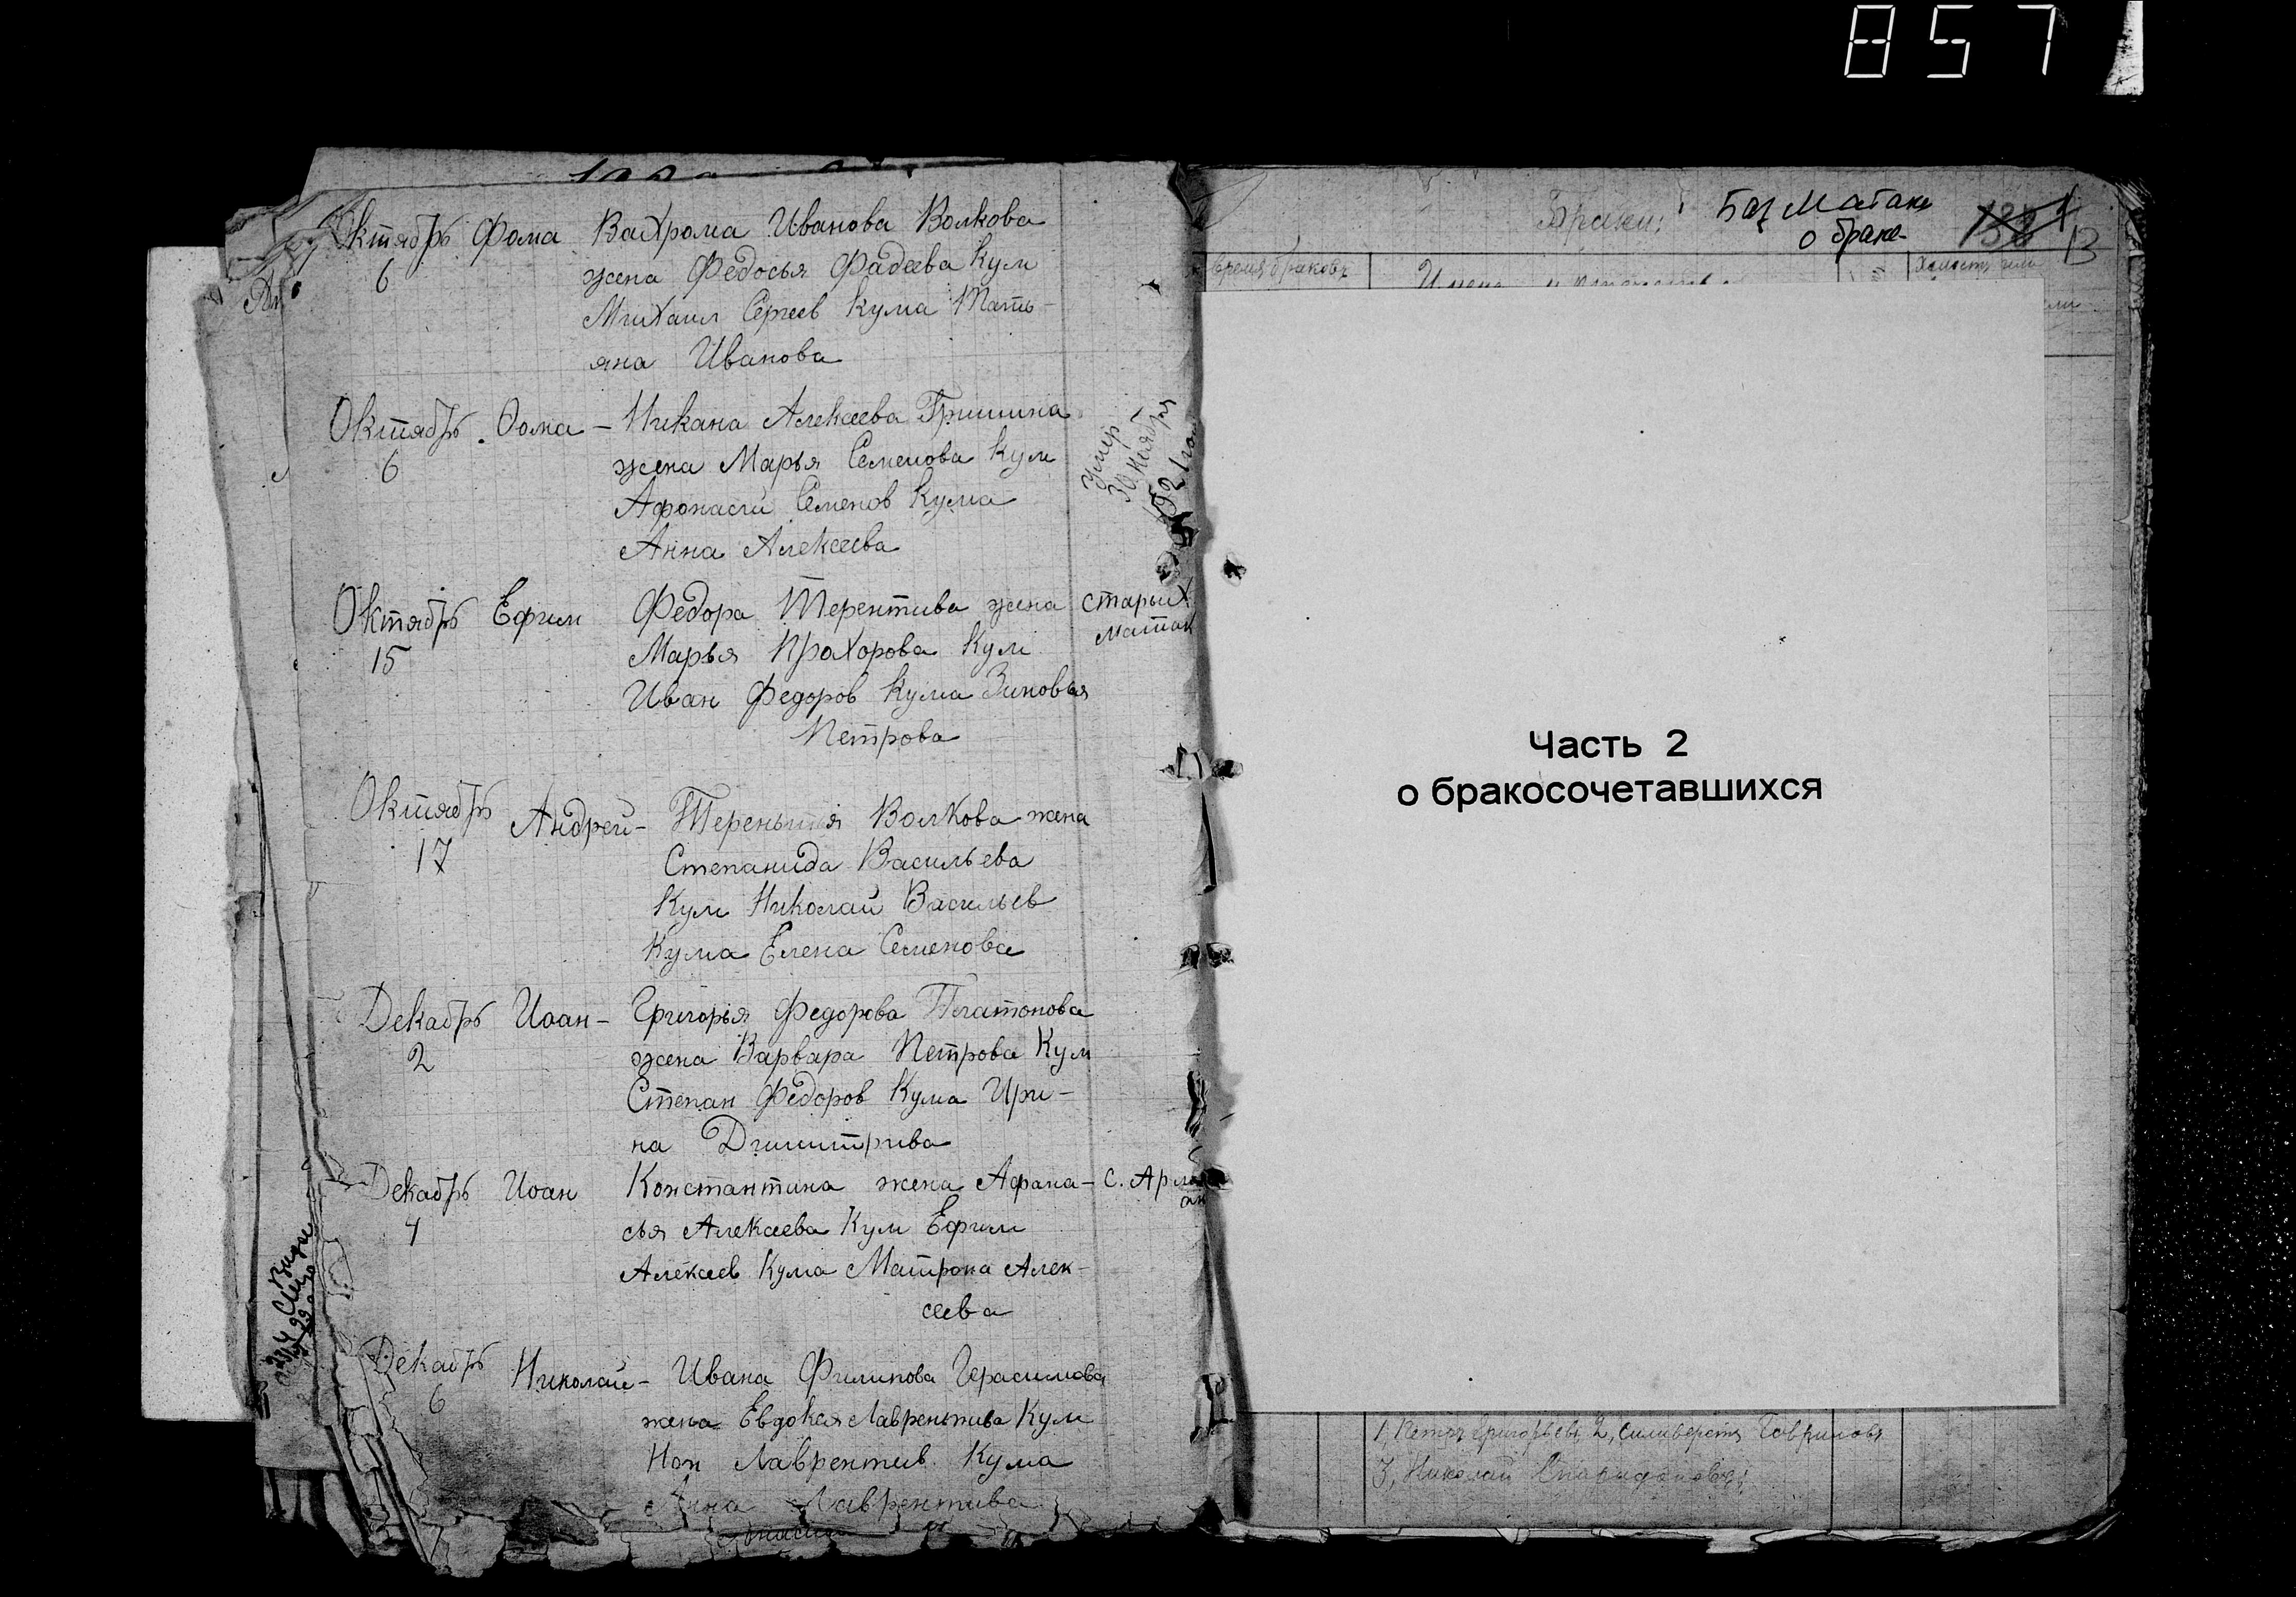 857
Октябрь Фома Вахрома Иванова Волкова
6 жена Федосья Фадеева Кум
Михаил Сергеев Кума Тать-
яна Иванова
Октябрь Фома - Никана Алексеева Гришина
6 жена Марья Семенова Кум
Афонасий Семенов Кума
Анна Алексеева
Умер
30 ноября
1921
Октябрь Ефим Федора Терентива жена старых
15 Марья Прохорова Кум матак
Иван Федоров Кума Зиновья
Петрова
Октябрь Андрей - Терентия Волкова жена
17 Степанида Васильева
Кум Николай Васильев
Кума Елена Семенова
Декабрь Иоан - Григорья Федорова Платонова
2 жена Варвара Петрова Кум
Степан Федоров Кума Ири-
на Димитрива
Декабрь Иоан Константина жена Афана- с.
4 сья Алексеева Кум Ефим
Алексеев Кума Матрона Алек-
сеева
Декабрь Николай - Ивана Филипова Герасимова
6 жена Евдокия Лаврентива Кум
Нон Лаврентив Кума
Анна Лаврентива
Браки: Баз Матаки
о браке
13
время браковъ Имена
Часть 2
о бракосочетавшихся
1, Петръ Григорьевъ 2, Силиверстъ Гавриловъ
3, Николай Спиридоновъ;